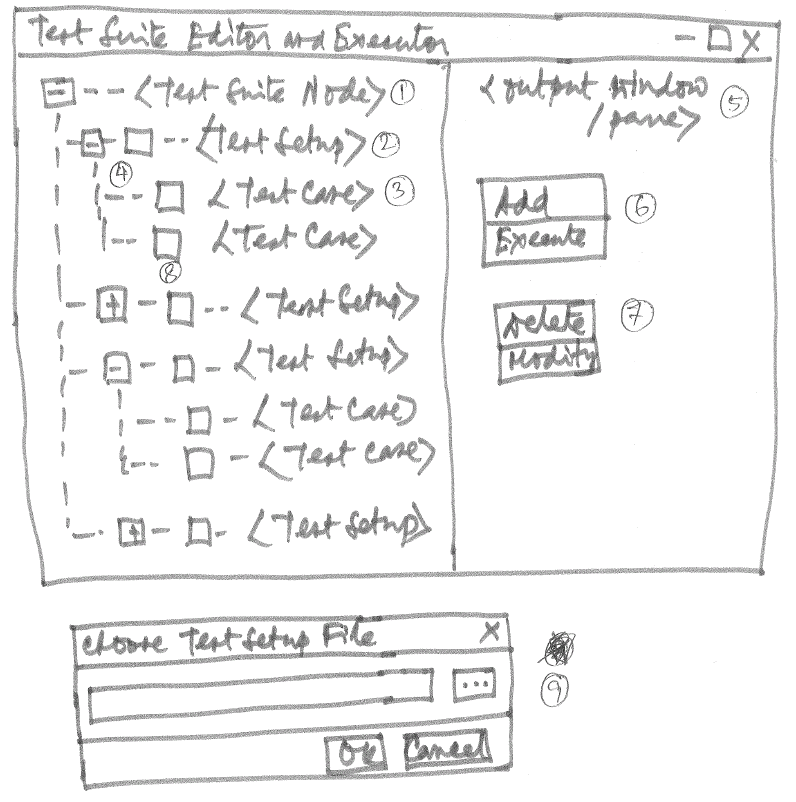 Test Suite Editor and Executor - □ X
- --- <Test Suite Node> 1
- -- <Test Setup> 2
4
-- <Test Case> 3
-- <Test Case>
8
+ - -- <Test Setup>
- - - <Test Setup>
-- - <Test Case>
-- - <Test Case>
-- + - - <Test Setup>
<output window
/pane> 5
Add 6
Execute
Delete 7
Modify
Choose Test Setup File X
... 9
OK Cancel